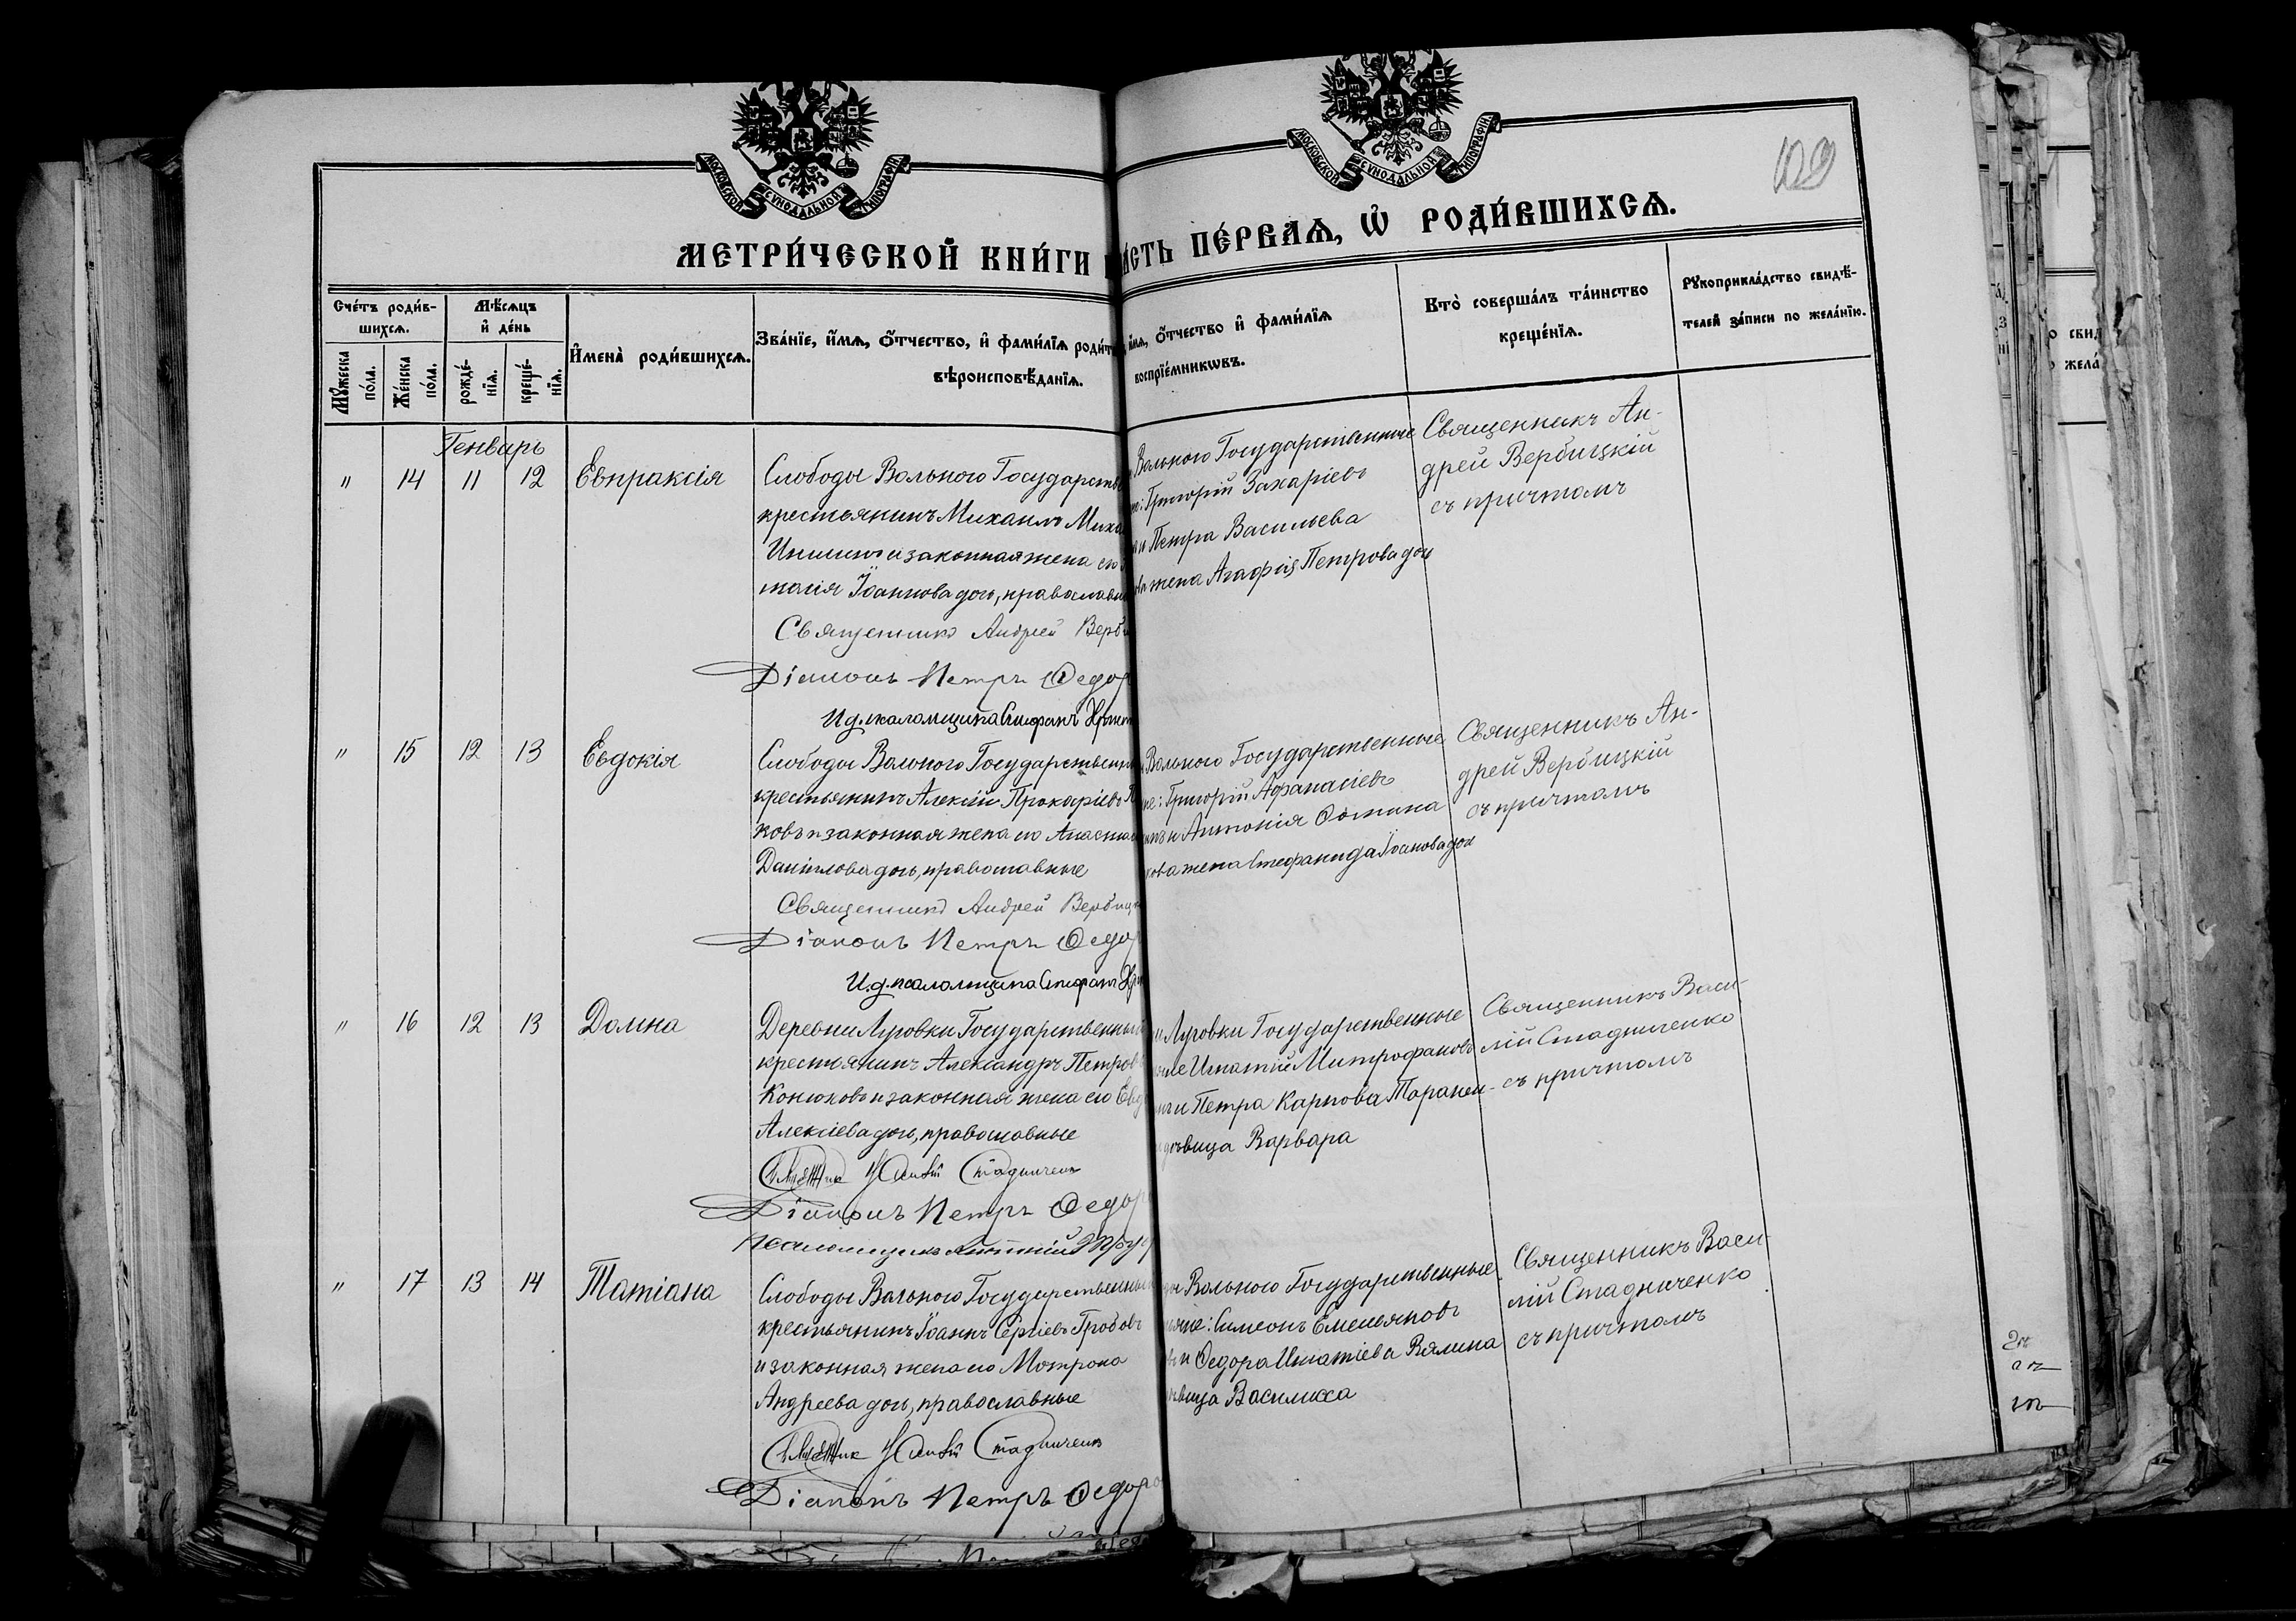 МОСКОВСКОЙ СУНОДАЛЬНОЙ ТИПОГРАФІИ
МОСКОВСКОЙ СУНОДАЛЬНОЙ ТИПОГРАФІИ
129
МЕТРИ́ЧЕСКОЙ КНИ́ГИ ЧА́СТЬ ПЕ́РВАѦ, Ѡ҆ РОДИ́ВШИХСѦ.
Сче́тъ роди́в-
шихсѧ.
Мꙋ́жеска по́ла.
Же́нска по́ла.
Мѣ́сѧцъ
и҆ де́нь
рожде́-
нїѧ.
креще́-
нїѧ.
И҆мена̀ роди́вшихсѧ.
Зва́нїе, и҆́мѧ, ѻ҆́тчество, и҆ фами́лїѧ роди́т
вѣроисповѣ́данїѧ.
и҆́мѧ, ѻ҆́тчество и҆ фами́лїѧ
воспрїе́мникѡвъ.
Кто̀ соверша́лъ та́инство
креще́нїѧ.
Рꙋкоприкла́дство свидѣ́-
телей за́писи по жела́нїю.
Генварь
" 14 11 12 Евпраксія
Слободы Вольного Государств
крестьянинъ Михаилъ Миха
и законная жена его
Іоаннова дочь, православн
Священникъ Андрей Верб
Діаконъ Петръ Ѳедор
И.д. псаломщика Стефанъ
Вольного Государственные
Григорій Захаріевъ
и Петра Васильева
жена Агафія Петрова доч
Священникъ Ан-
дрей Вербицкій
съ причтомъ
" 15 12 13 Евдокія
Слободы Вольного Государственн
крестьянинъ Алексій
ковъ и законная жена его Анастас
Даніилова дочь, православные
Священникъ Андрей Вербицк
Діаконъ Петръ Ѳедор
И.д. псаломщика Стефанъ
Вольного Государственные
Григорій Афанасіевъ
и Антонія Ѳомина
кова жена Стефанида Іоанова доч
Священникъ Ан-
дрей Вербицкій
съ причтомъ
" 16 12 13 Домна
Деревни Луговки Государственный
крестьянинъ Александръ Петров
Конюховъ и законная жена его Евд
Алексіева дочь, православные
Священник Василій Стадниченко
Діаконъ Петръ Ѳедор
Псаломщикъ
и Луговки Государственные
Игнатій Митрофановъ
и Петра Карпова Таранен-
дѣвица Варвара
Священникъ Васи-
лій Стадниченко
съ причтомъ
" 17 13 14 Татіана
Слободы Вольного Государственный
крестьянинъ Іоаннъ Сергіевъ Гробовъ
и законная жена его Мотрона
Андреева дочь, православные
Священник Василій Стадниченко
Діаконъ Петръ Ѳедоро
Вольного Государственные
Симеонъ Емельяновъ
и Ѳедора Игнатіева Вялина
дѣвица Василисса
Священникъ Васи-
лій Стадниченко
съ причтомъ